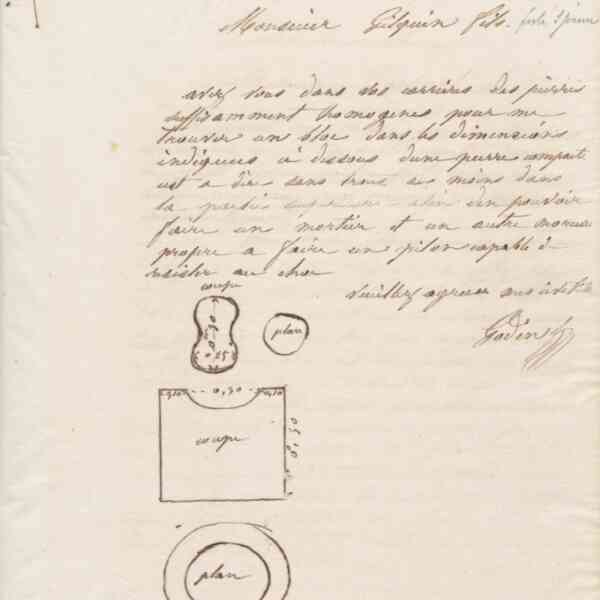 Monsieur Gilquin fils.
avez vous dans vos carrières des pierres
suffisamment homogenes pour me
trouver un bloc dans les dimensions
indiquees ci dessous dune pierre compacte
cest a dire sans trous au moins dans
la partie afin den pouvoir
faire un mortier et un autre morceau
propre a faire un pilon capable de
resister au choc
veuillez agreer mes
Godin
coupe
0,30
0,15
plan
0,10 0,30 0,10
coupe
0,50
plan